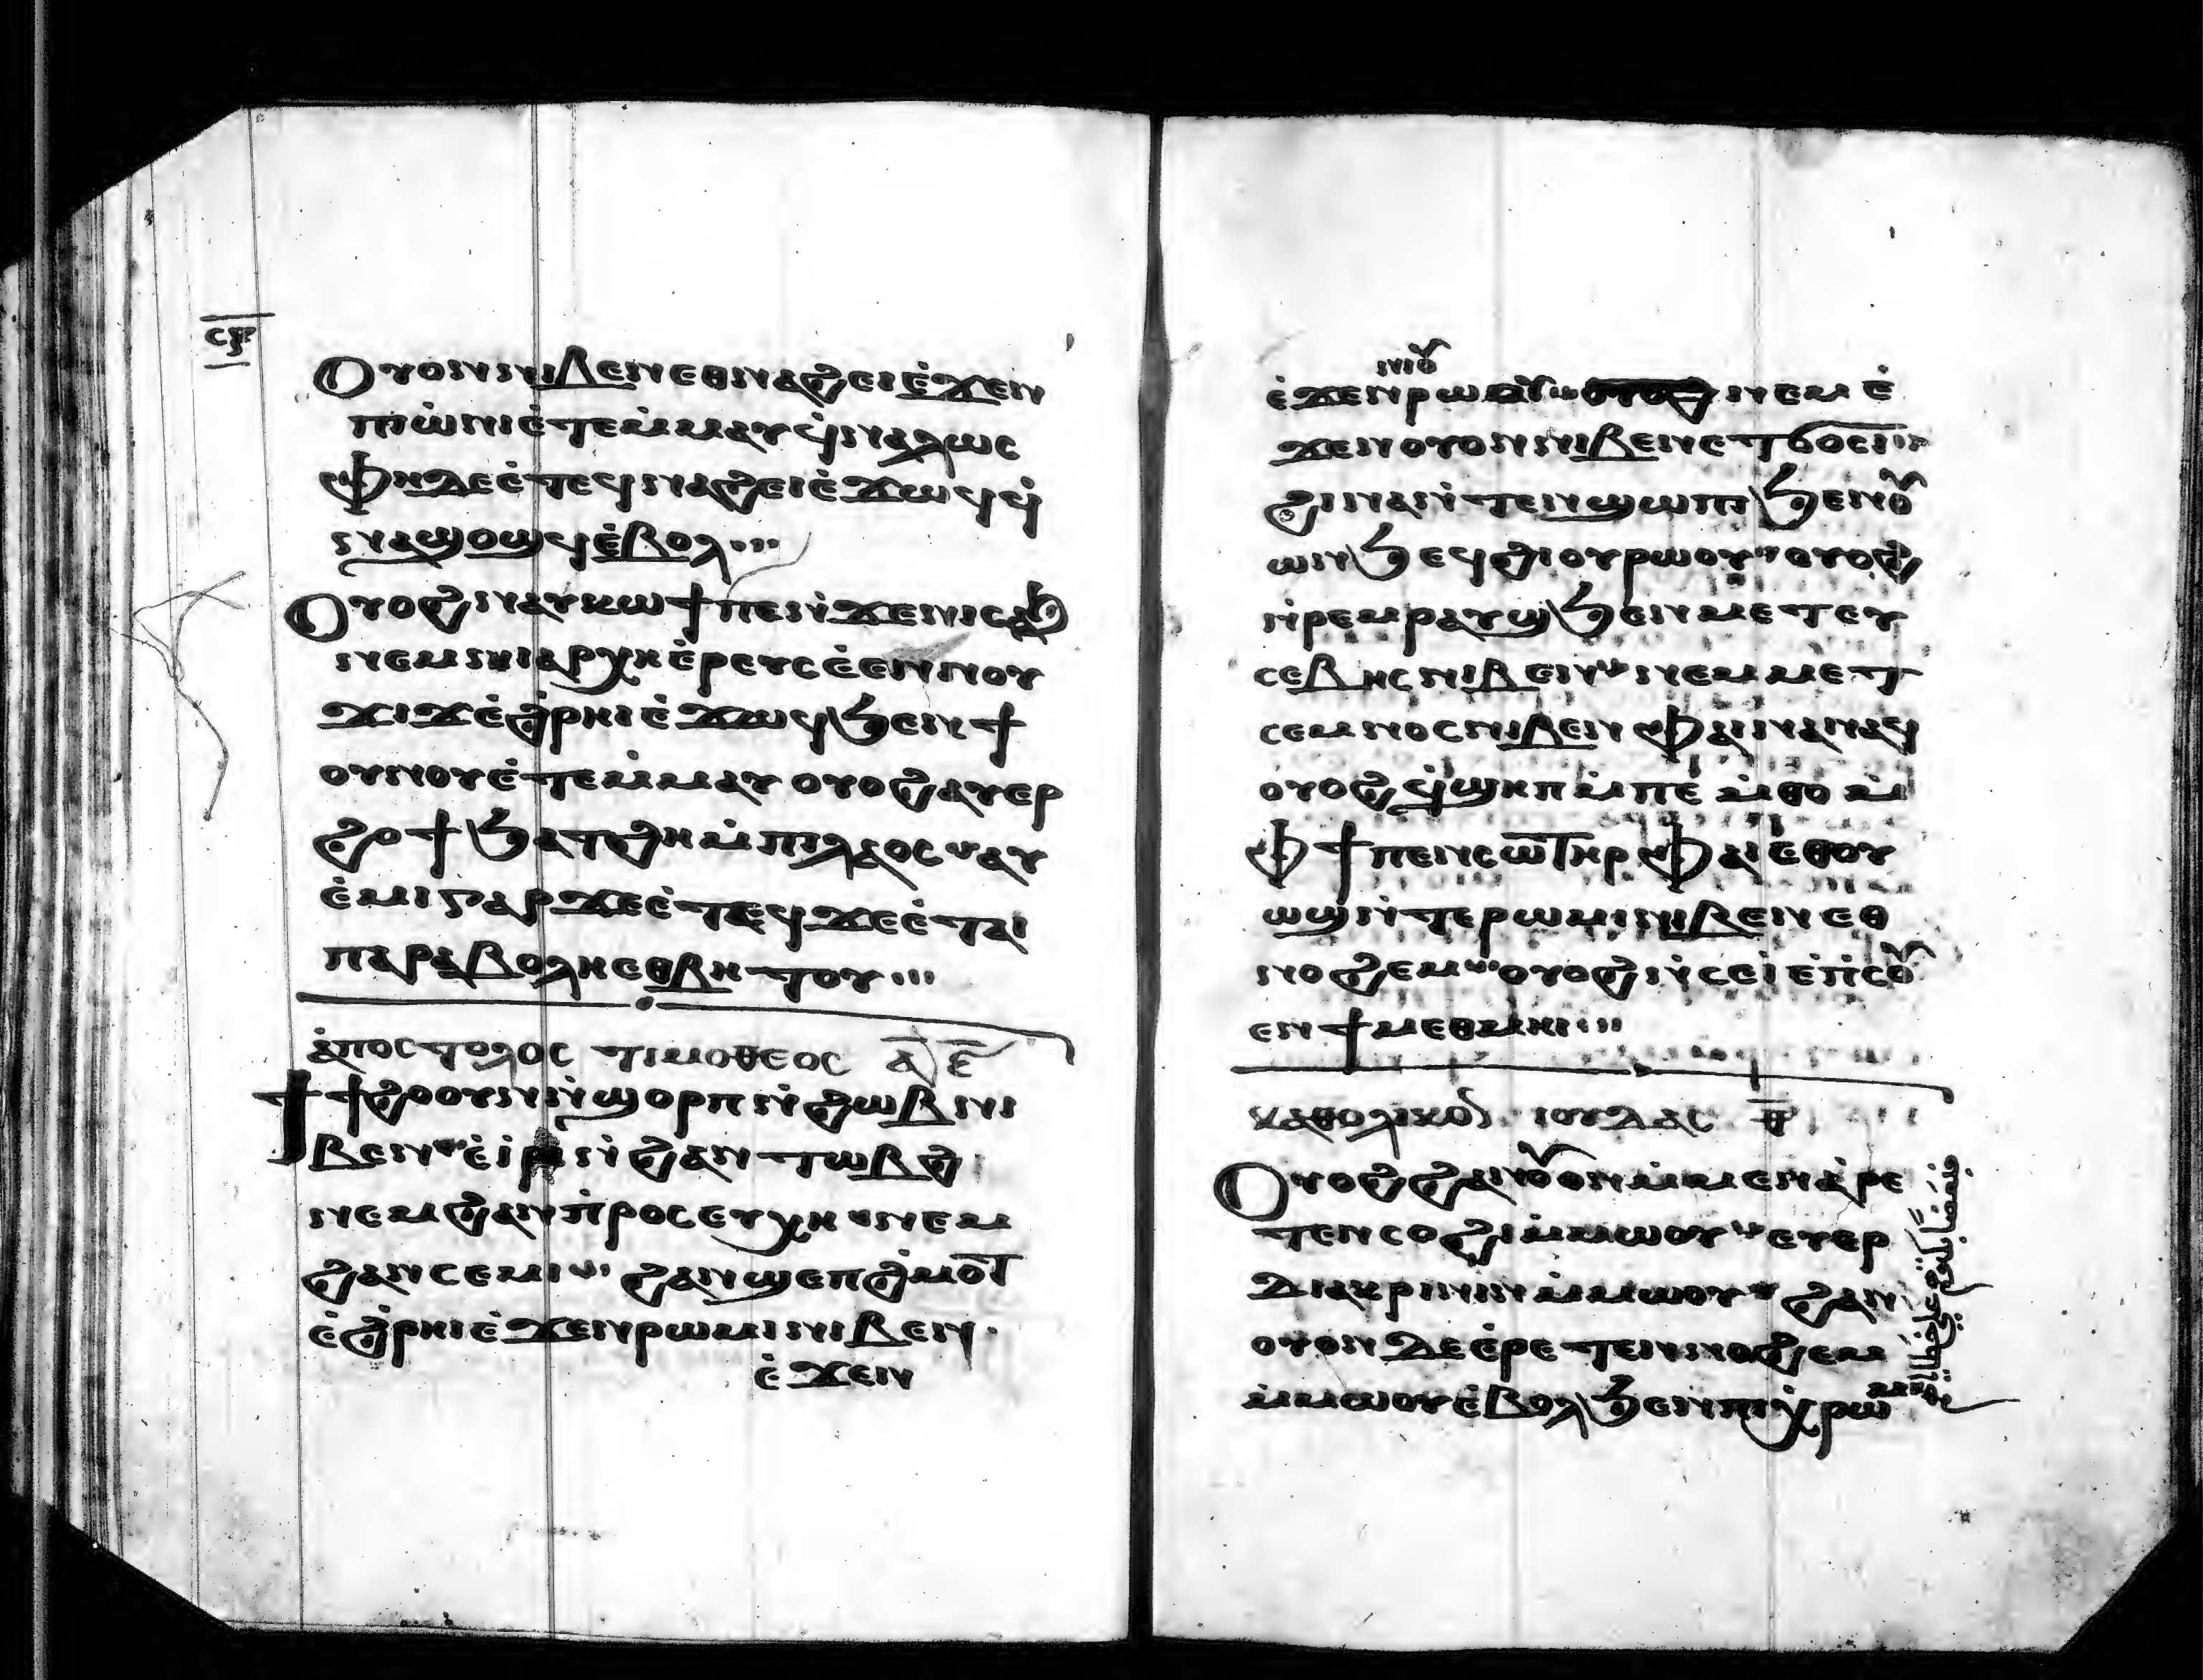 ⲥ
Ⲟⲩⲟⲛ ⲛⲓⲃⲉⲛ ⲉⲑⲛⲁϩⲉⲓ ⲉ̇ϫⲉⲛ
ⲡⲓⲱ̇ⲛⲓ ⲉ̇ⲧⲉⲙ̇ⲙⲁⲩ ϥ̇ⲛⲁⲗⲱⲥ
ⲫⲏ ⲇⲉ ⲉ̇ⲧⲉϥⲛⲁϩⲉⲓ ⲉ̇ϫⲱϥ ϥ̇
ⲛⲁϣⲟϣϥ ⲉ̇ⲃⲟⲗ...
Ⲟⲩⲟϩ ⲛⲁⲩⲕⲱϯ ⲡⲉ ⲛ̇ϫⲉ ⲛⲓⲥⲁϧ
ⲛⲉⲙ ⲛⲓⲁⲣⲭⲏⲉ̇ⲣⲉⲩⲥ ⲉ̇ⲉⲛ ⲛⲟⲩ
ϫⲓϫ ⲉ̇ϩ̇ⲣⲏⲓ ⲉ̇ϫⲱϥ ϧⲉⲛ ϯ
ⲟⲩⲛⲟⲩ ⲉ̇ⲧⲉⲙ̇ⲙⲁⲩ ⲟⲩⲟϩ ⲁⲩⲉⲣ
ϩⲟϯ ϧⲁⲧϩⲏ ⲙ̇ⲡⲓⲗⲁⲟⲥ ⲁⲩ
ⲉ̇ⲙⲓ ⲅⲁⲣ ϫⲉ ⲉ̇ⲧⲉϥϫⲉ ⲉ̇ⲧⲁⲓ
ⲡⲁⲣⲁⲃⲟⲗⲏ ⲉⲑⲃⲏⲧⲟⲩ...
ⲁ̇ⲡⲟⲥⲧⲟⲗⲟⲥ ⲧⲓⲙⲟⲑⲉⲟⲥ ⲁ̅ ⲉ̅
Ϯϯϩⲟ ⲟⲩⲛ ⲛ̇ϣⲟⲣⲡ ⲛ̇ϩⲱⲃ ⲛⲓ
ⲃⲉⲛ ⲉ̇ⲓ̇ⲣⲓ ⲛ̇ϩⲁⲛⲧⲱⲃϩ
ⲛⲉⲙ ϩⲁⲛⲡ̇ⲣⲟⲥⲉⲩⲭⲏ ⲛⲉⲙ
ϩⲁⲛⲥⲉⲙⲓ ϩⲁⲛϣⲉⲡϩ̇ⲙⲟⲧ
ⲉ̇ϩ̇ⲣⲏⲓ ⲉ̇ϫⲉⲛ ⲣⲱⲙⲓ ⲛⲓⲃⲉⲛ.
ⲉ̇ϫⲉⲛ
ⲛⲓⲟⲩ
ⲉ̇ϫⲉⲛ ⲣⲱⲟⲩ ⲛⲉⲙ ⲉ̇
ϫⲉⲛ ⲟⲩⲟⲛ ⲛⲓⲃⲉⲛ ⲉⲧϭⲟⲥⲓ
ϩⲓⲛⲁ ⲛ̇ⲧⲉⲛϣⲱⲡⲓ ϧⲉⲛ ⲟⲩ
ⲱⲛϧ ⲉϥϩⲓⲟⲩⲣⲱⲟⲩ ⲟⲩⲟϩ
ⲛ̇ⲣⲉⲙⲣⲁⲩϣ ϧⲉⲛ ⲙⲉⲧⲉⲩ
ⲥⲉⲃⲏⲥ ⲛⲓⲃⲉⲛ ⲛⲉⲙ ⲙⲉⲧ
ⲥⲉⲙⲛⲟⲥ ⲛⲓⲃⲉⲛ ⲫⲁⲓ ⲛⲁⲛⲁϥ
ⲟⲩⲟϩ ϥ̇ϣⲏⲡ ⲙ̇ⲡⲉⲙ̇ⲑⲟ ⲙ̇
ⲫϯ ⲡⲉⲛⲥⲱⲧⲏⲣ ⲫⲁⲓ ⲉⲑⲟⲩ
ⲱϣ ⲛ̇ⲧⲉ ⲣⲱⲙⲓ ⲛⲓⲃⲉⲛ ⲉⲑ
ⲛⲟϩⲉⲙ ⲟⲩⲟϩ ⲛ̇ⲥⲉⲓ̇ ⲉ̇ⲡ̇ⲥⲟⲩ
ⲉⲛ ϯⲙⲉⲑⲙⲏⲓ...
ⲕⲁⲑⲟⲗⲓⲕⲟⲛ ⲓⲟⲩⲇⲁⲥ
Ⲟⲩⲟϩ ϩⲁⲛⲟⲩⲟⲛ ⲙ̇ⲙⲉⲛ ⲁ̇ⲣⲉ
ⲧⲉⲛⲥⲟϩⲓ ⲙ̇ⲙⲱⲟⲩ ⲉⲩⲉⲣ
ⲇⲓⲁⲕⲣⲓⲛⲓⲛ ⲙ̇ⲙⲱⲟⲩ ϩⲁⲛ
ⲟⲩⲟⲛ ⲇⲉ ⲉ̇ⲣⲉⲧⲉⲛⲛⲟϩⲉⲙ
ⲙ̇ⲙⲱⲟⲩ ⲉ̇ⲃⲟⲗ ϧⲉⲛ ⲡⲓⲭ̇ⲣⲱⲙ